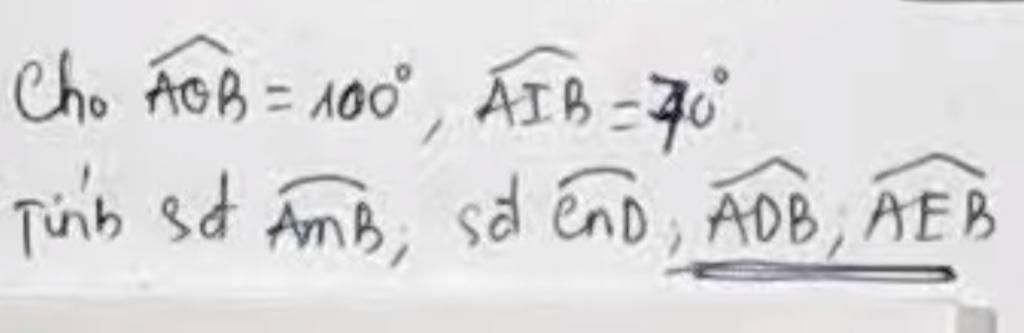 Cho \widehat{AOB} = 100°, \widehat{AIB} = 70°.
Tính sđ \overset{\frown}{AmB}; sđ \overset{\frown}{CnD}; \widehat{ADB}; \widehat{AEB}